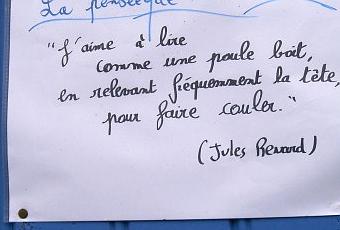 La penseèque
"J'aime à lire
comme une poule boit,
en relevant fréquemment la tête,
pour faire couler."
(Jules Renard)